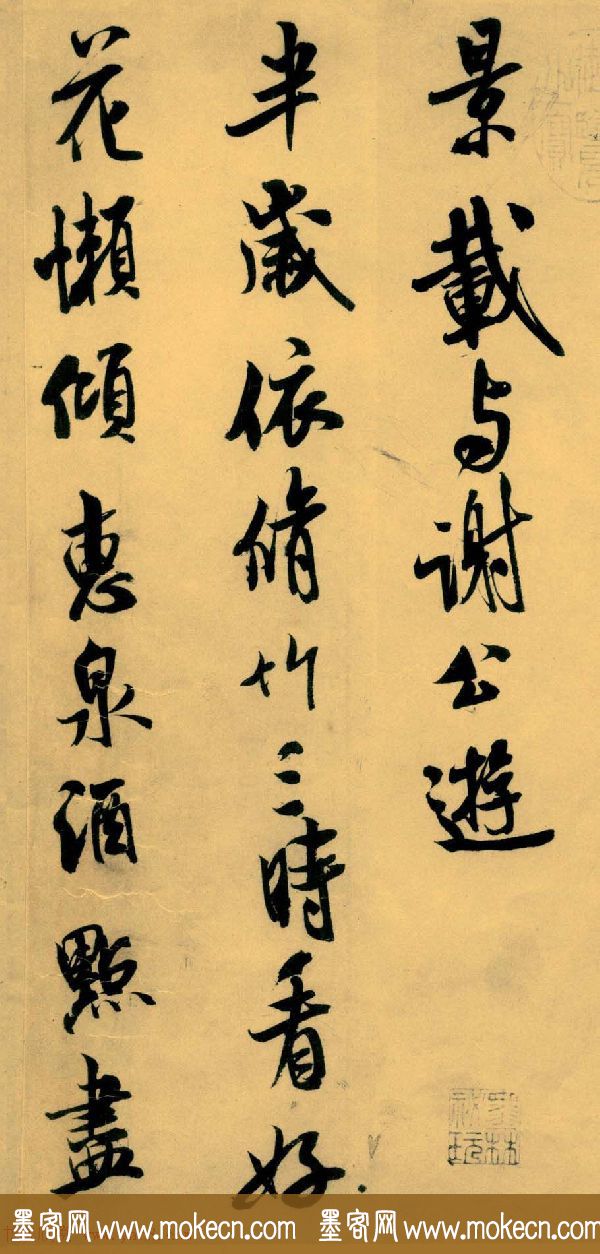 景載与謝公遊
半歲依脩竹三時看好
花懶傾惠泉酒點盡
墨客网 www.mokecn.com 墨客网 www.mokecn.com